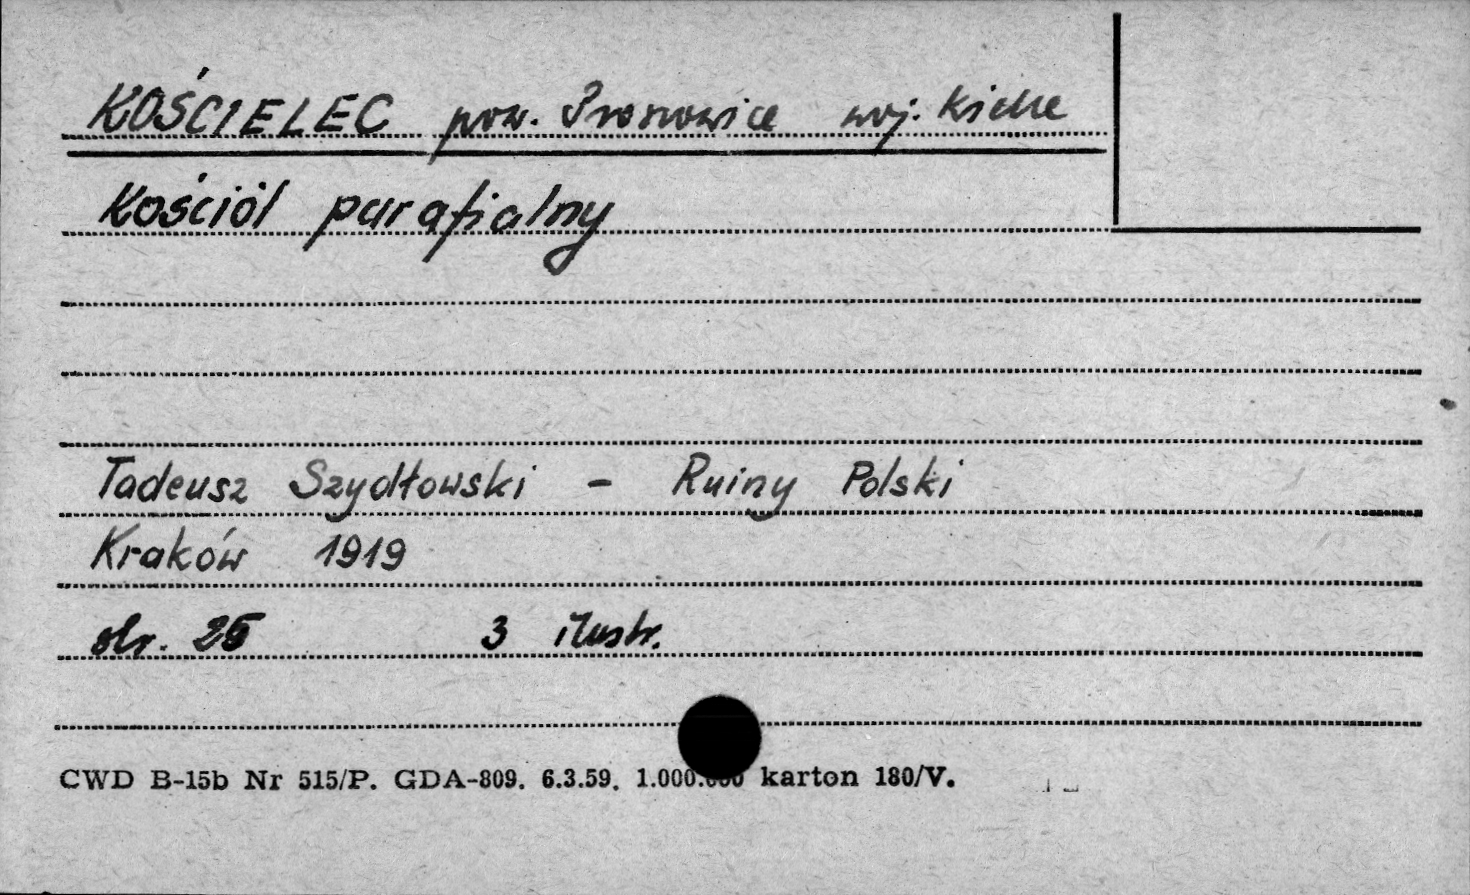 KOŚCIELEC pow. Proszowice woj. Kielce
Kościół parafialny
Tadeusz Szydłowski - Ruiny Polski
Kraków 1919
str. 25 3 ilustr.
CWD B-15b Nr 515/P. GDA-809. 6.3.59. 1.000.000 karton 180/V.